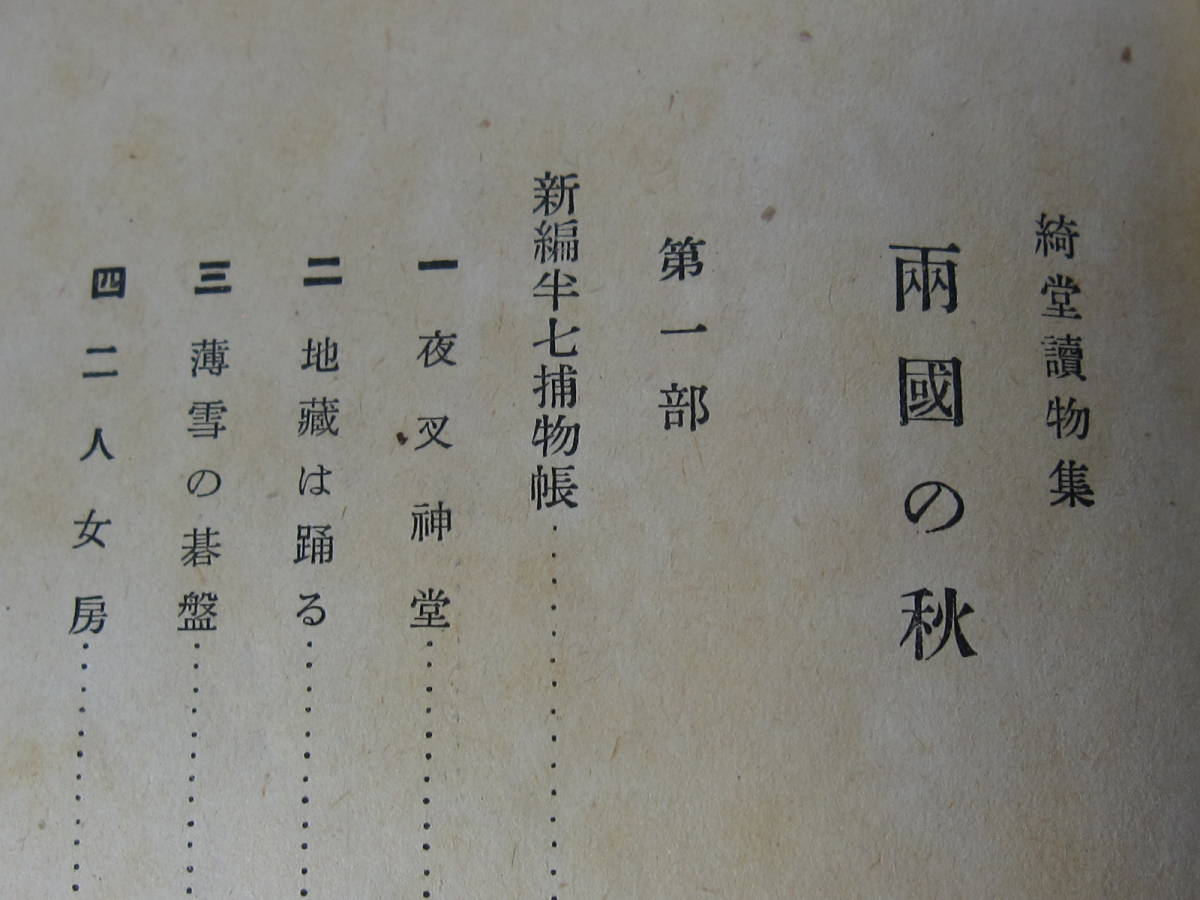 綺堂讀物集
兩國の秋
第一部
新編半七捕物帳
一 夜叉神堂
二 地藏は踊る
三 薄雪の碁盤
四 二人女房